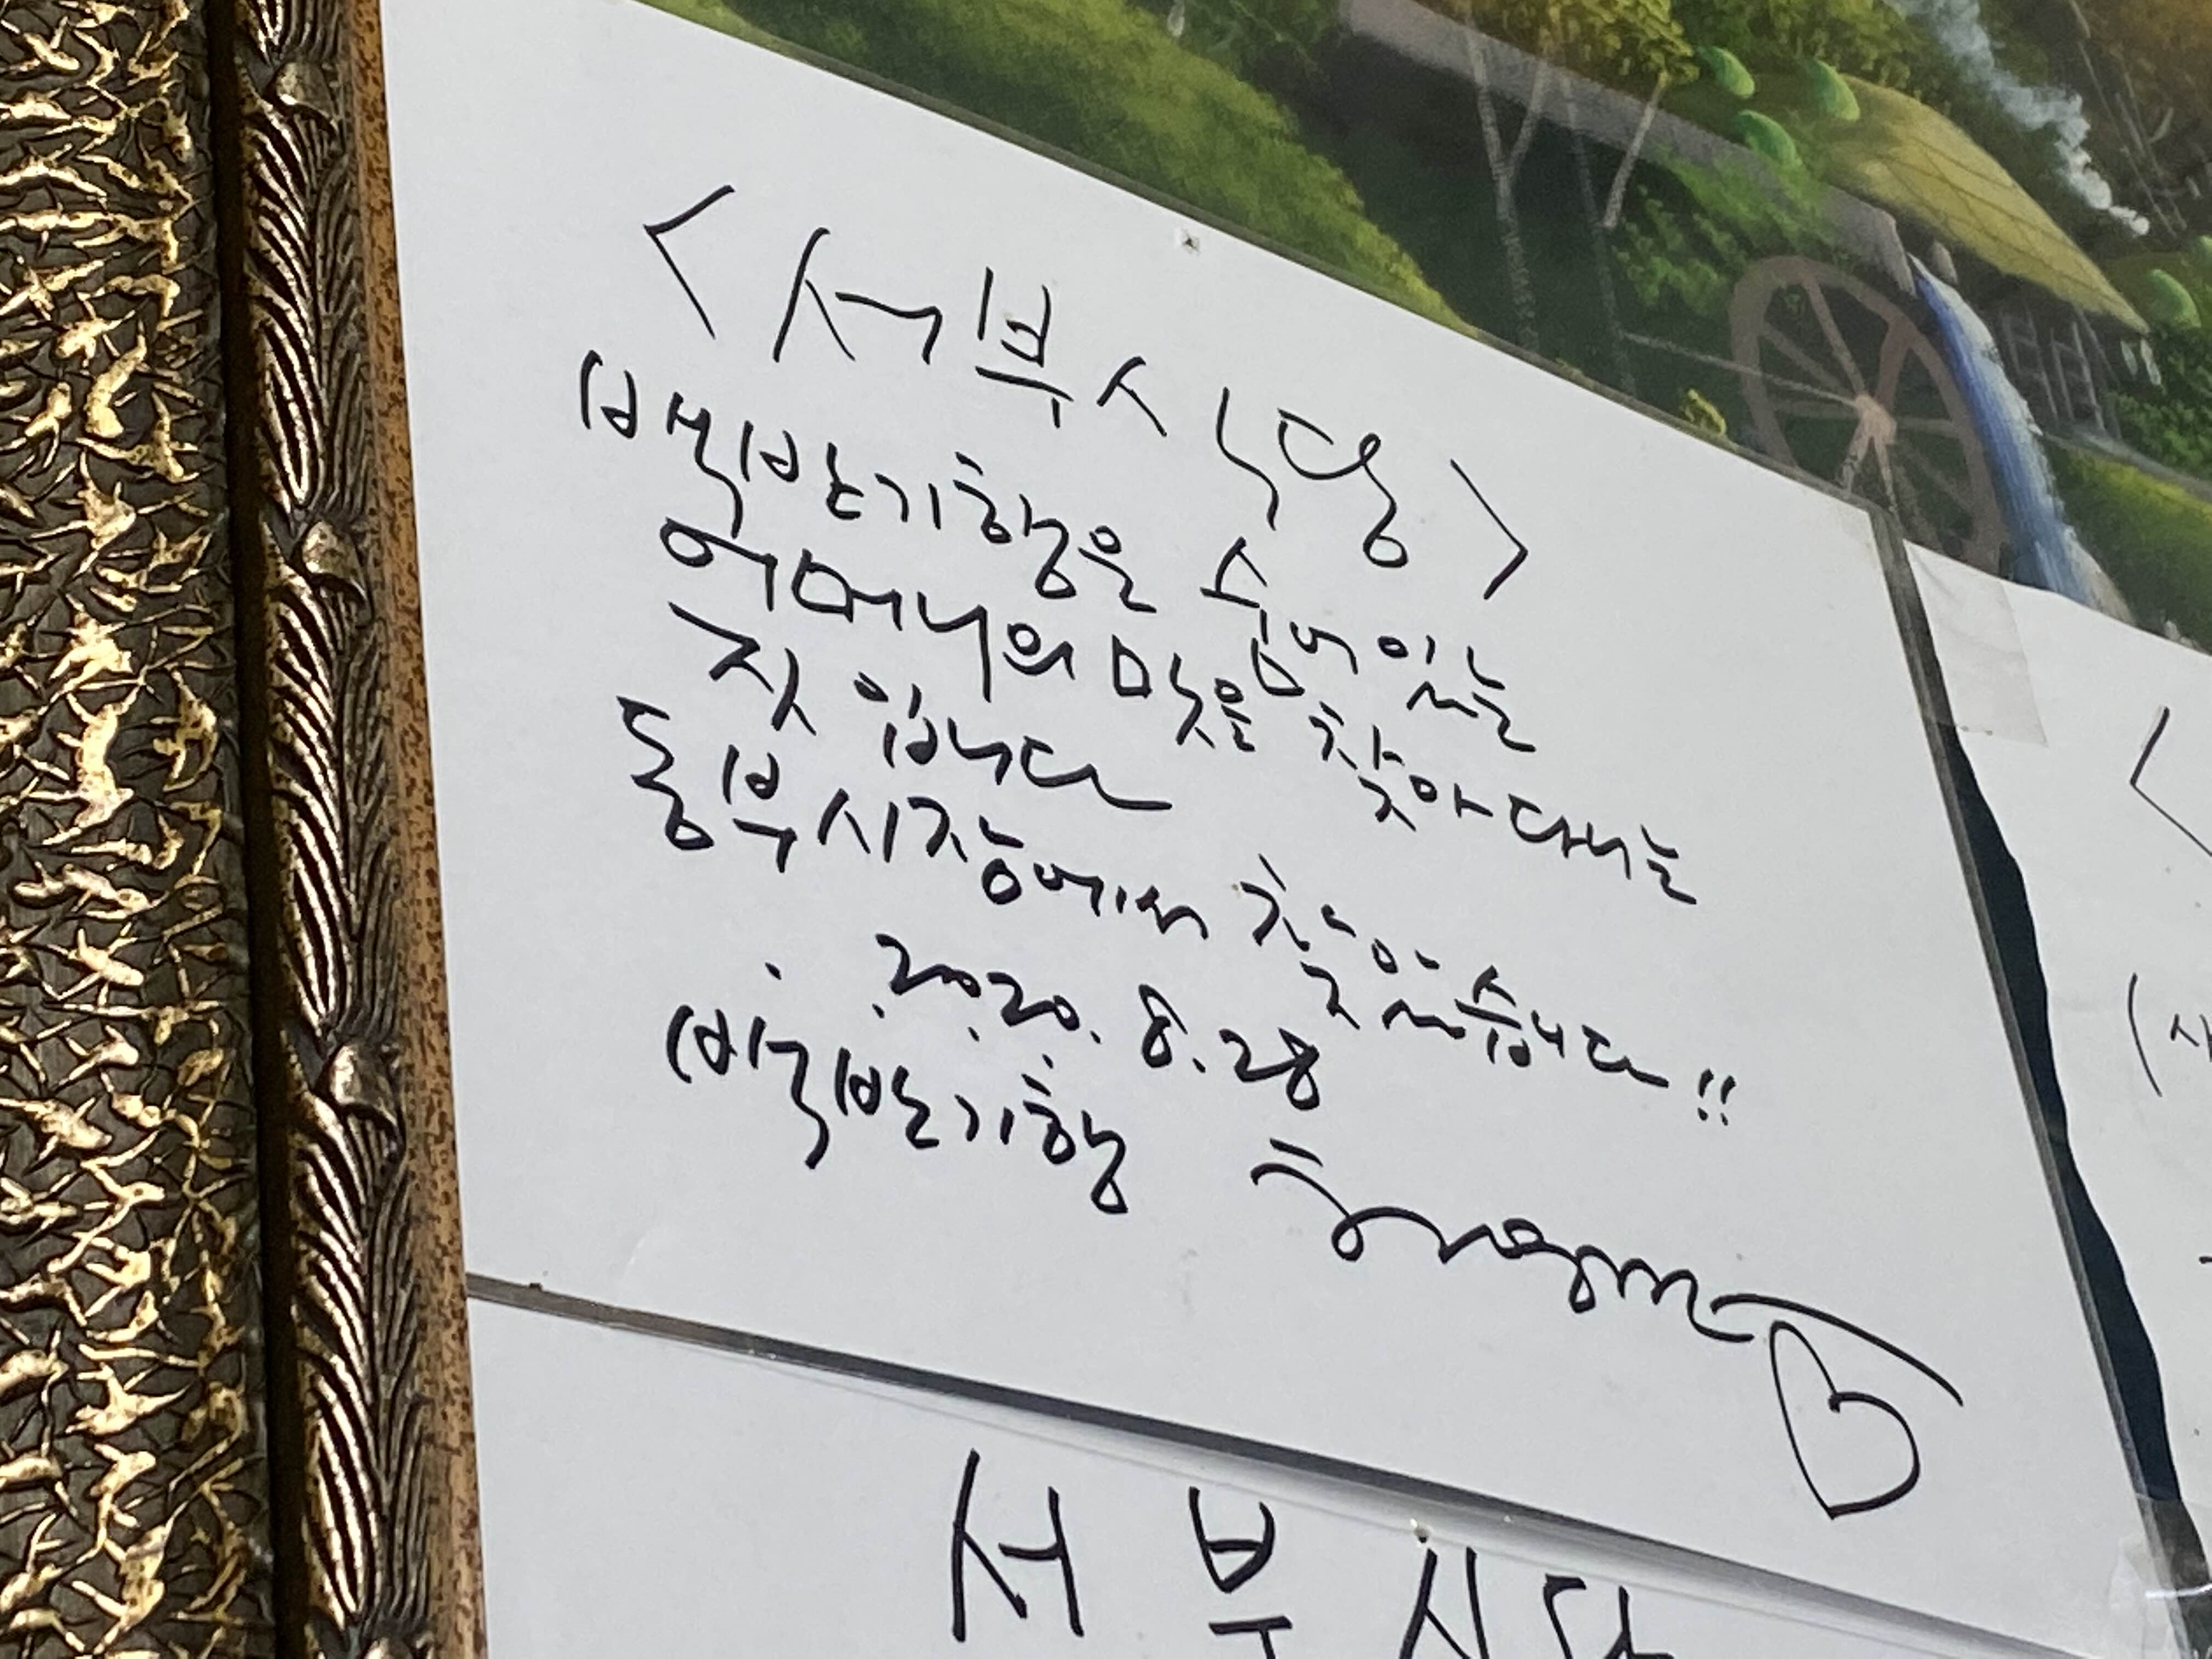 <서부식당>
백반기행은 숨어있는
어머니의 맛을 찾아다니는
짓 입니다
동부시장에서 찾았습니다!!
2020. 8. 28
백반기행
서부식당